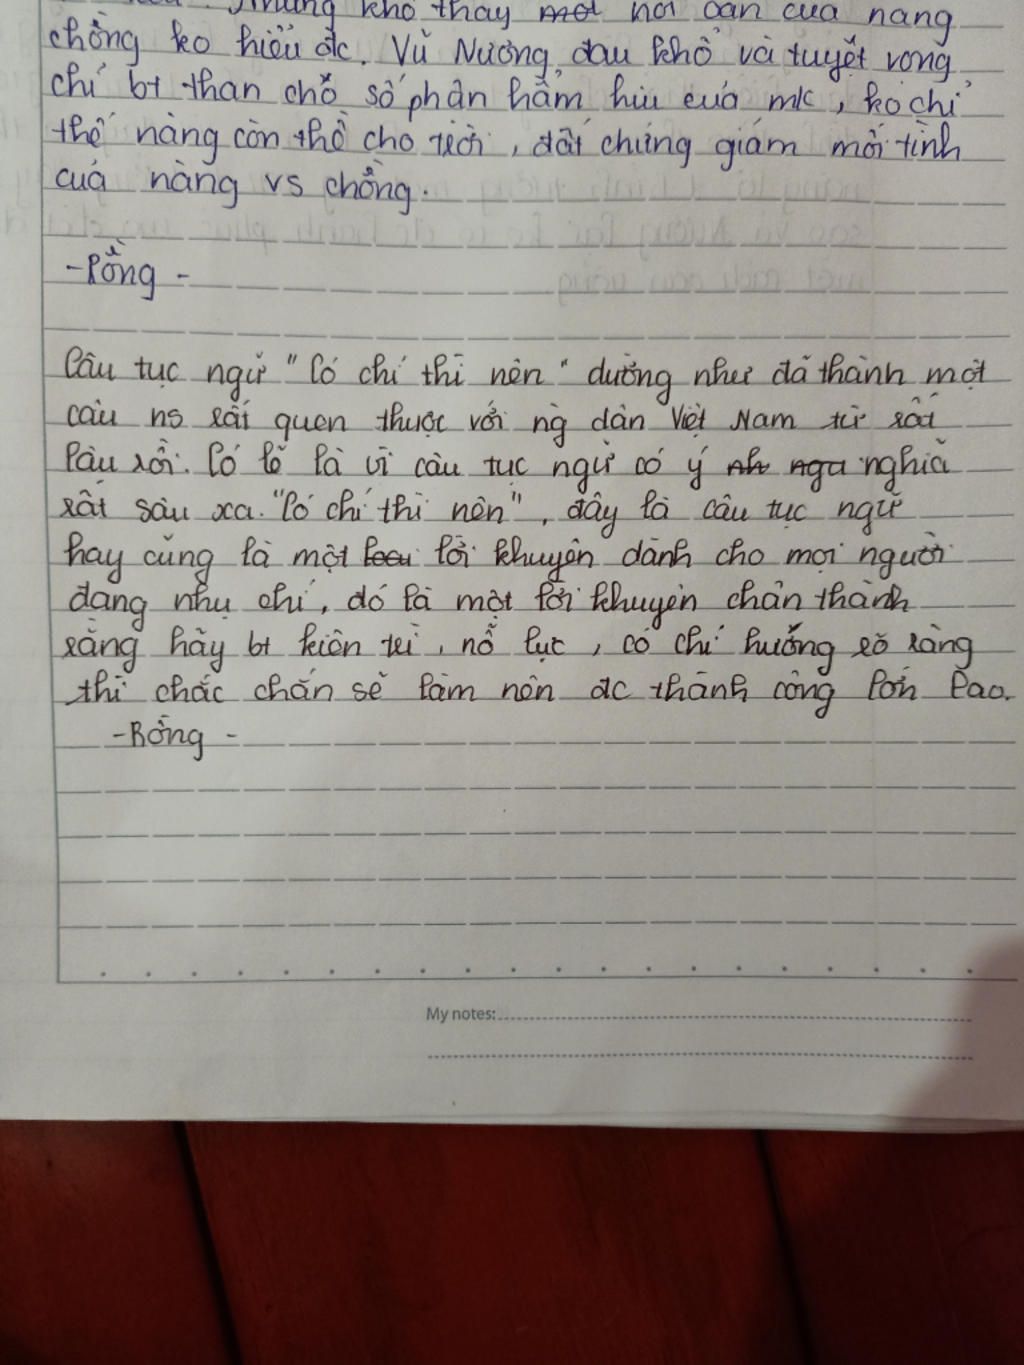 nhưng khó thay mot nỗi oan của nàng
chồng ko hiểu đc. Vũ Nương đau khổ và tuyệt vọng
chỉ bt than cho số phận hẩm hiu của mk, ko chỉ
thế nàng còn thề cho trời, đất chứng giám mối tình
của nàng vs chồng.
-Rồng -
Câu tục ngữ "Có chí thì nên" dường như đã thành một
câu ns rất quen thuộc với ng dân Việt Nam từ rất
lâu rồi. Có lẽ là vì câu tục ngữ có ý nh nga nghĩa
rất sâu xa. "Có chí thì nên", đây là câu tục ngữ
hay cũng là một lời khuyên dành cho mọi người
đang nhụ chí, đó là một lời khuyên chân thành
rằng hãy bt kiên trì, nỗ lực, có chí hướng rõ ràng
thì chắc chắn sẽ làm nên đc thành công lớn lao.
-Rồng -
My notes: